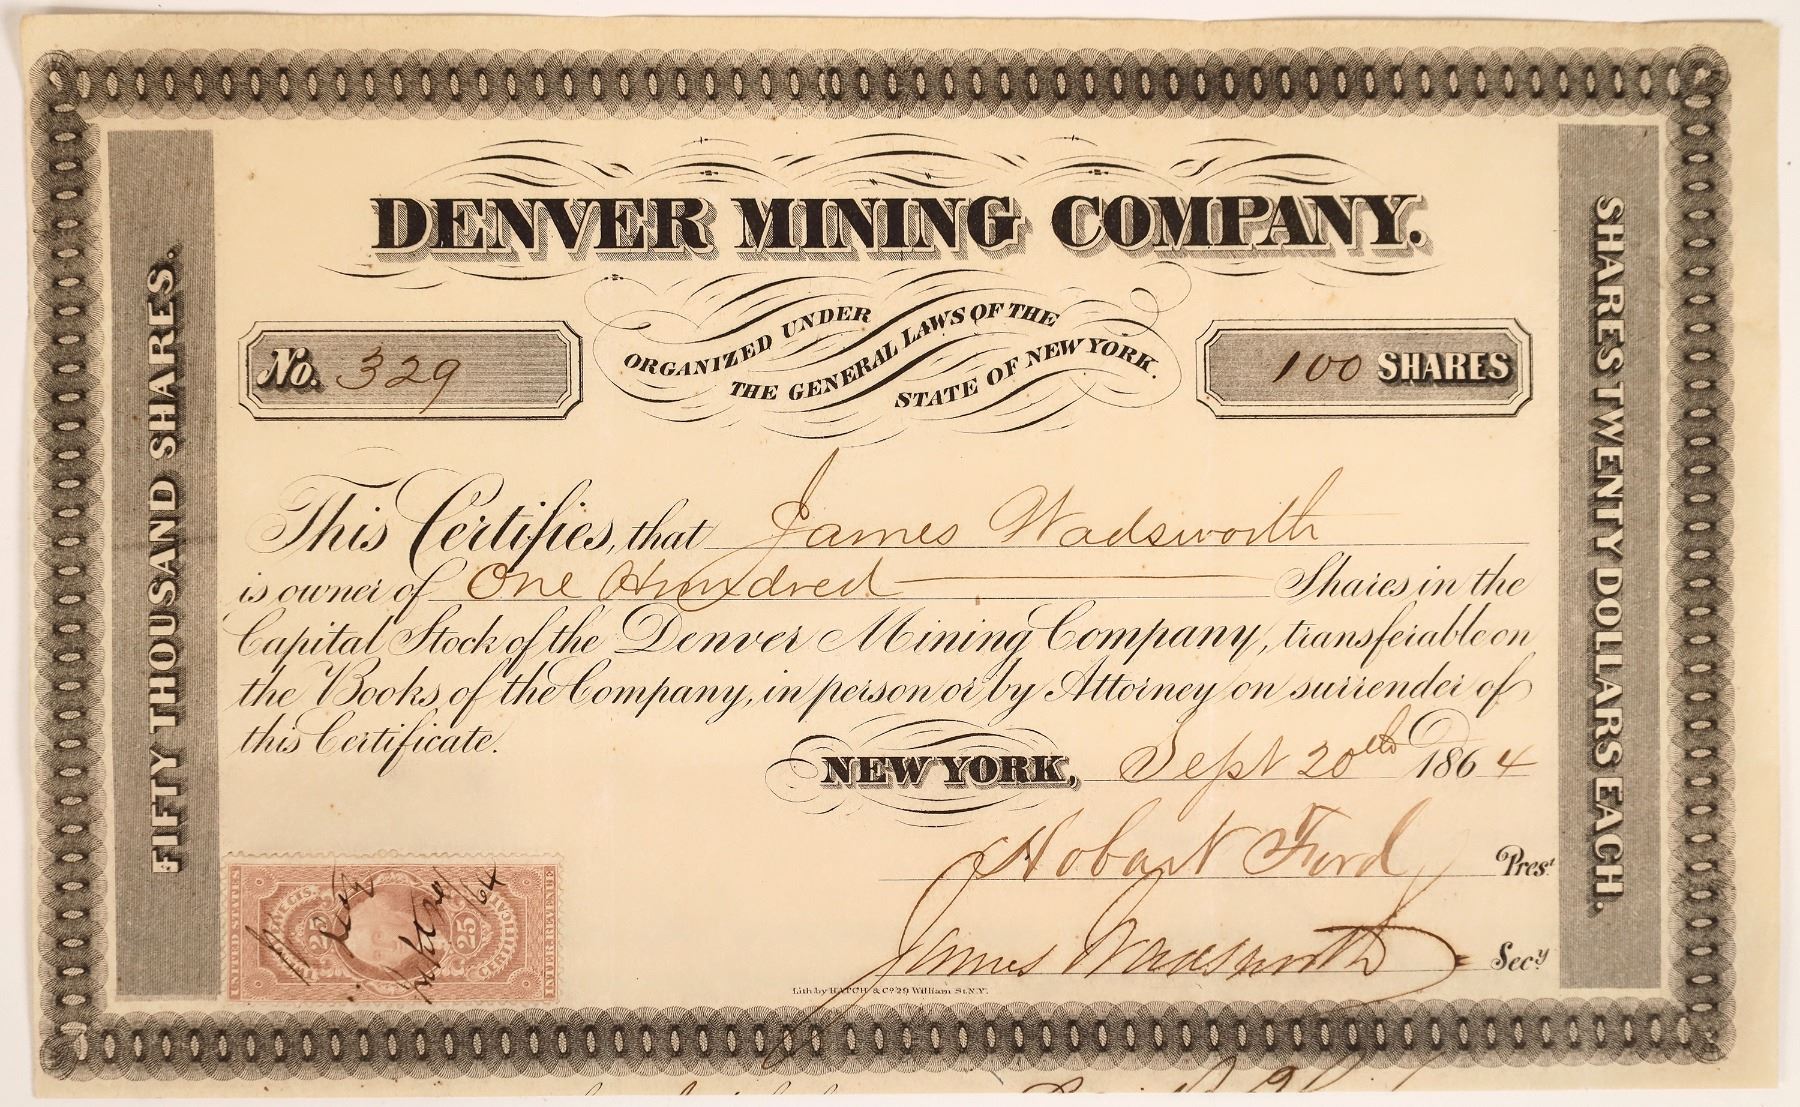 DENVER MINING COMPANY.
ORGANIZED UNDER
THE GENERAL LAWS OF THE
STATE OF NEW YORK.
No. 329
100 SHARES
FIFTY THOUSAND SHARES.
SHARES TWENTY DOLLARS EACH.
This Certifies, that James Wadsworth
is owner of One Hundred Shares in the
Capital Stock of the Denver Mining Company, transferable on
the Books of the Company, in person or by Attorney on surrender of
this Certificate.
NEW YORK, Sept 20th 1864
Hobart Ford Prest
James Wadsworth Secy
UNITED STATES
25 25
CERTIFICATE
INTER. REVENUE
64
Lith by HATCH & Co 29 William St. N.Y.